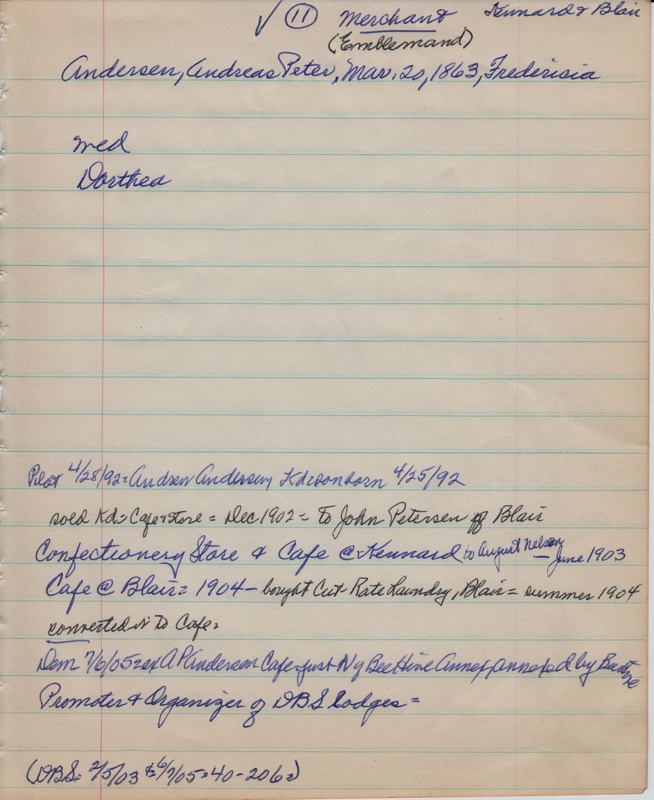 ✓ (11) Merchant Kennard & Blair
(Emblemand)
Andersen, Andreas Peter, Mar. 20, 1863, Fredericia
med
Dorthea
Pilot 4/28/92 = Andrew Andersen, Kd = son born 4/25/92
sold Kd = Cafe & store = Dec. 1902 = to John Petersen of Blair
Confectionery Store & Cafe @ Kennard to August Nelson — June 1903
Cafe @ Blair = 1904 — bought Cut-Rate Laundry, Blair = summer 1904
converted it to Cafe.
Dem 7/6/05 = A P Andersen Cafe = just N of Bee Hive Annex, annexed by Bee Hive
Promoter & Organizer of DBS lodges =
(DBS = 2/5/03 6/7/05 = 40-206 =)